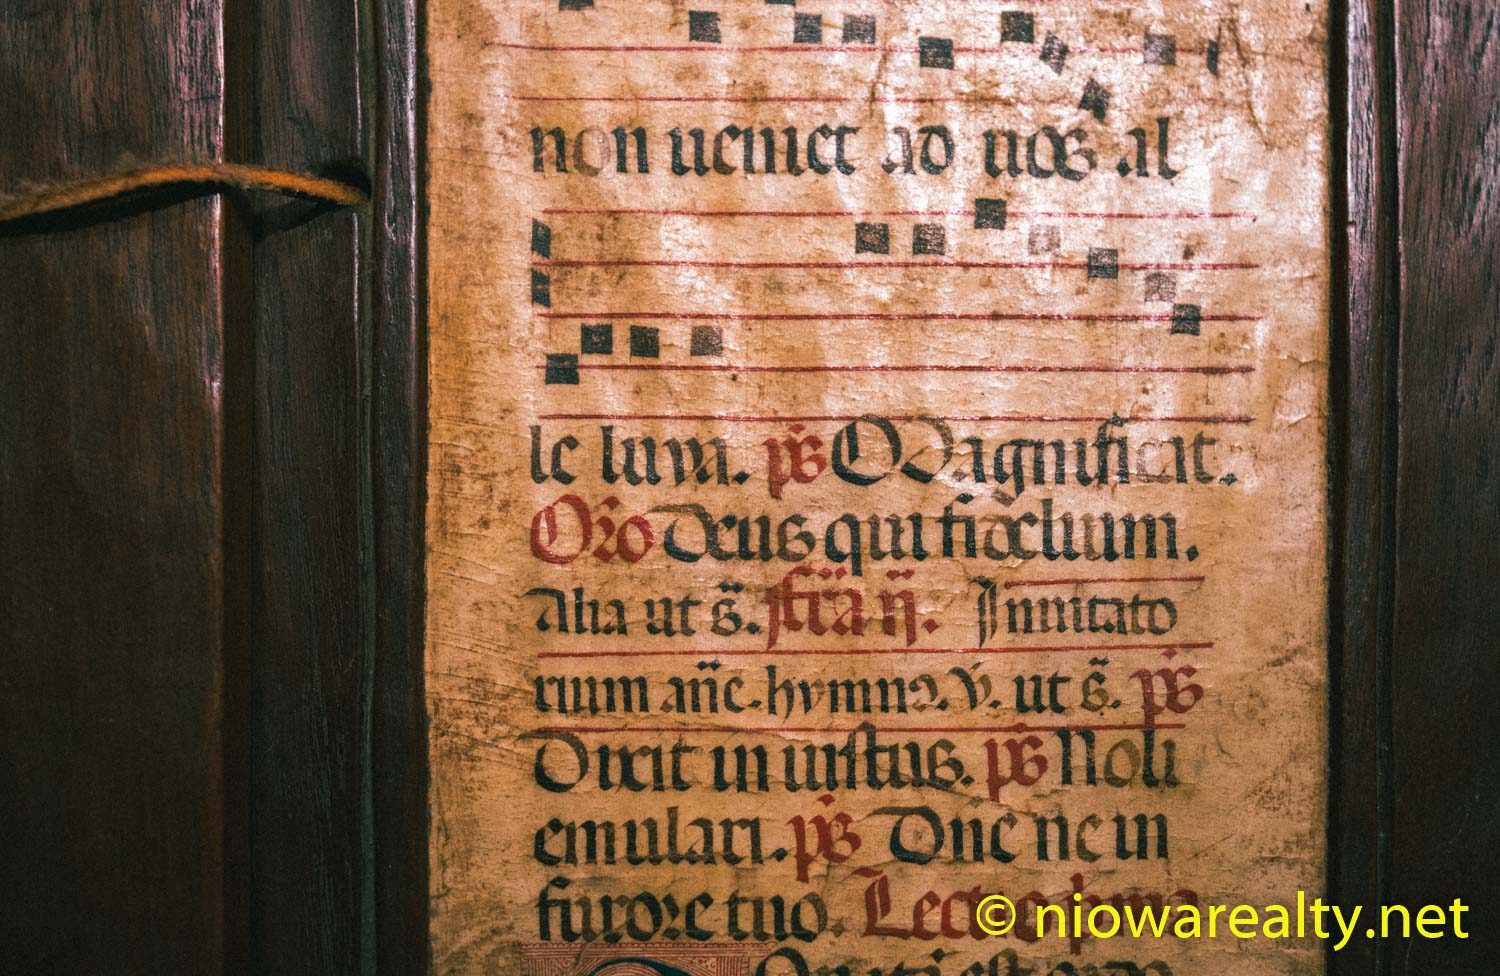 non ueniet ad uos al
le luya. ps̄ Magnificat.
Or̄o Deus qui fidelium.
Alia ut s̄. fer̄ia ij. Inuitato
rium añe. hymno. v̄. ut s̄. ps̄
Dixit iniustus. ps̄ Noli
emulari. ps̄ Dñe ne in
furore tuo. Lectio prima
© niowarealty.net